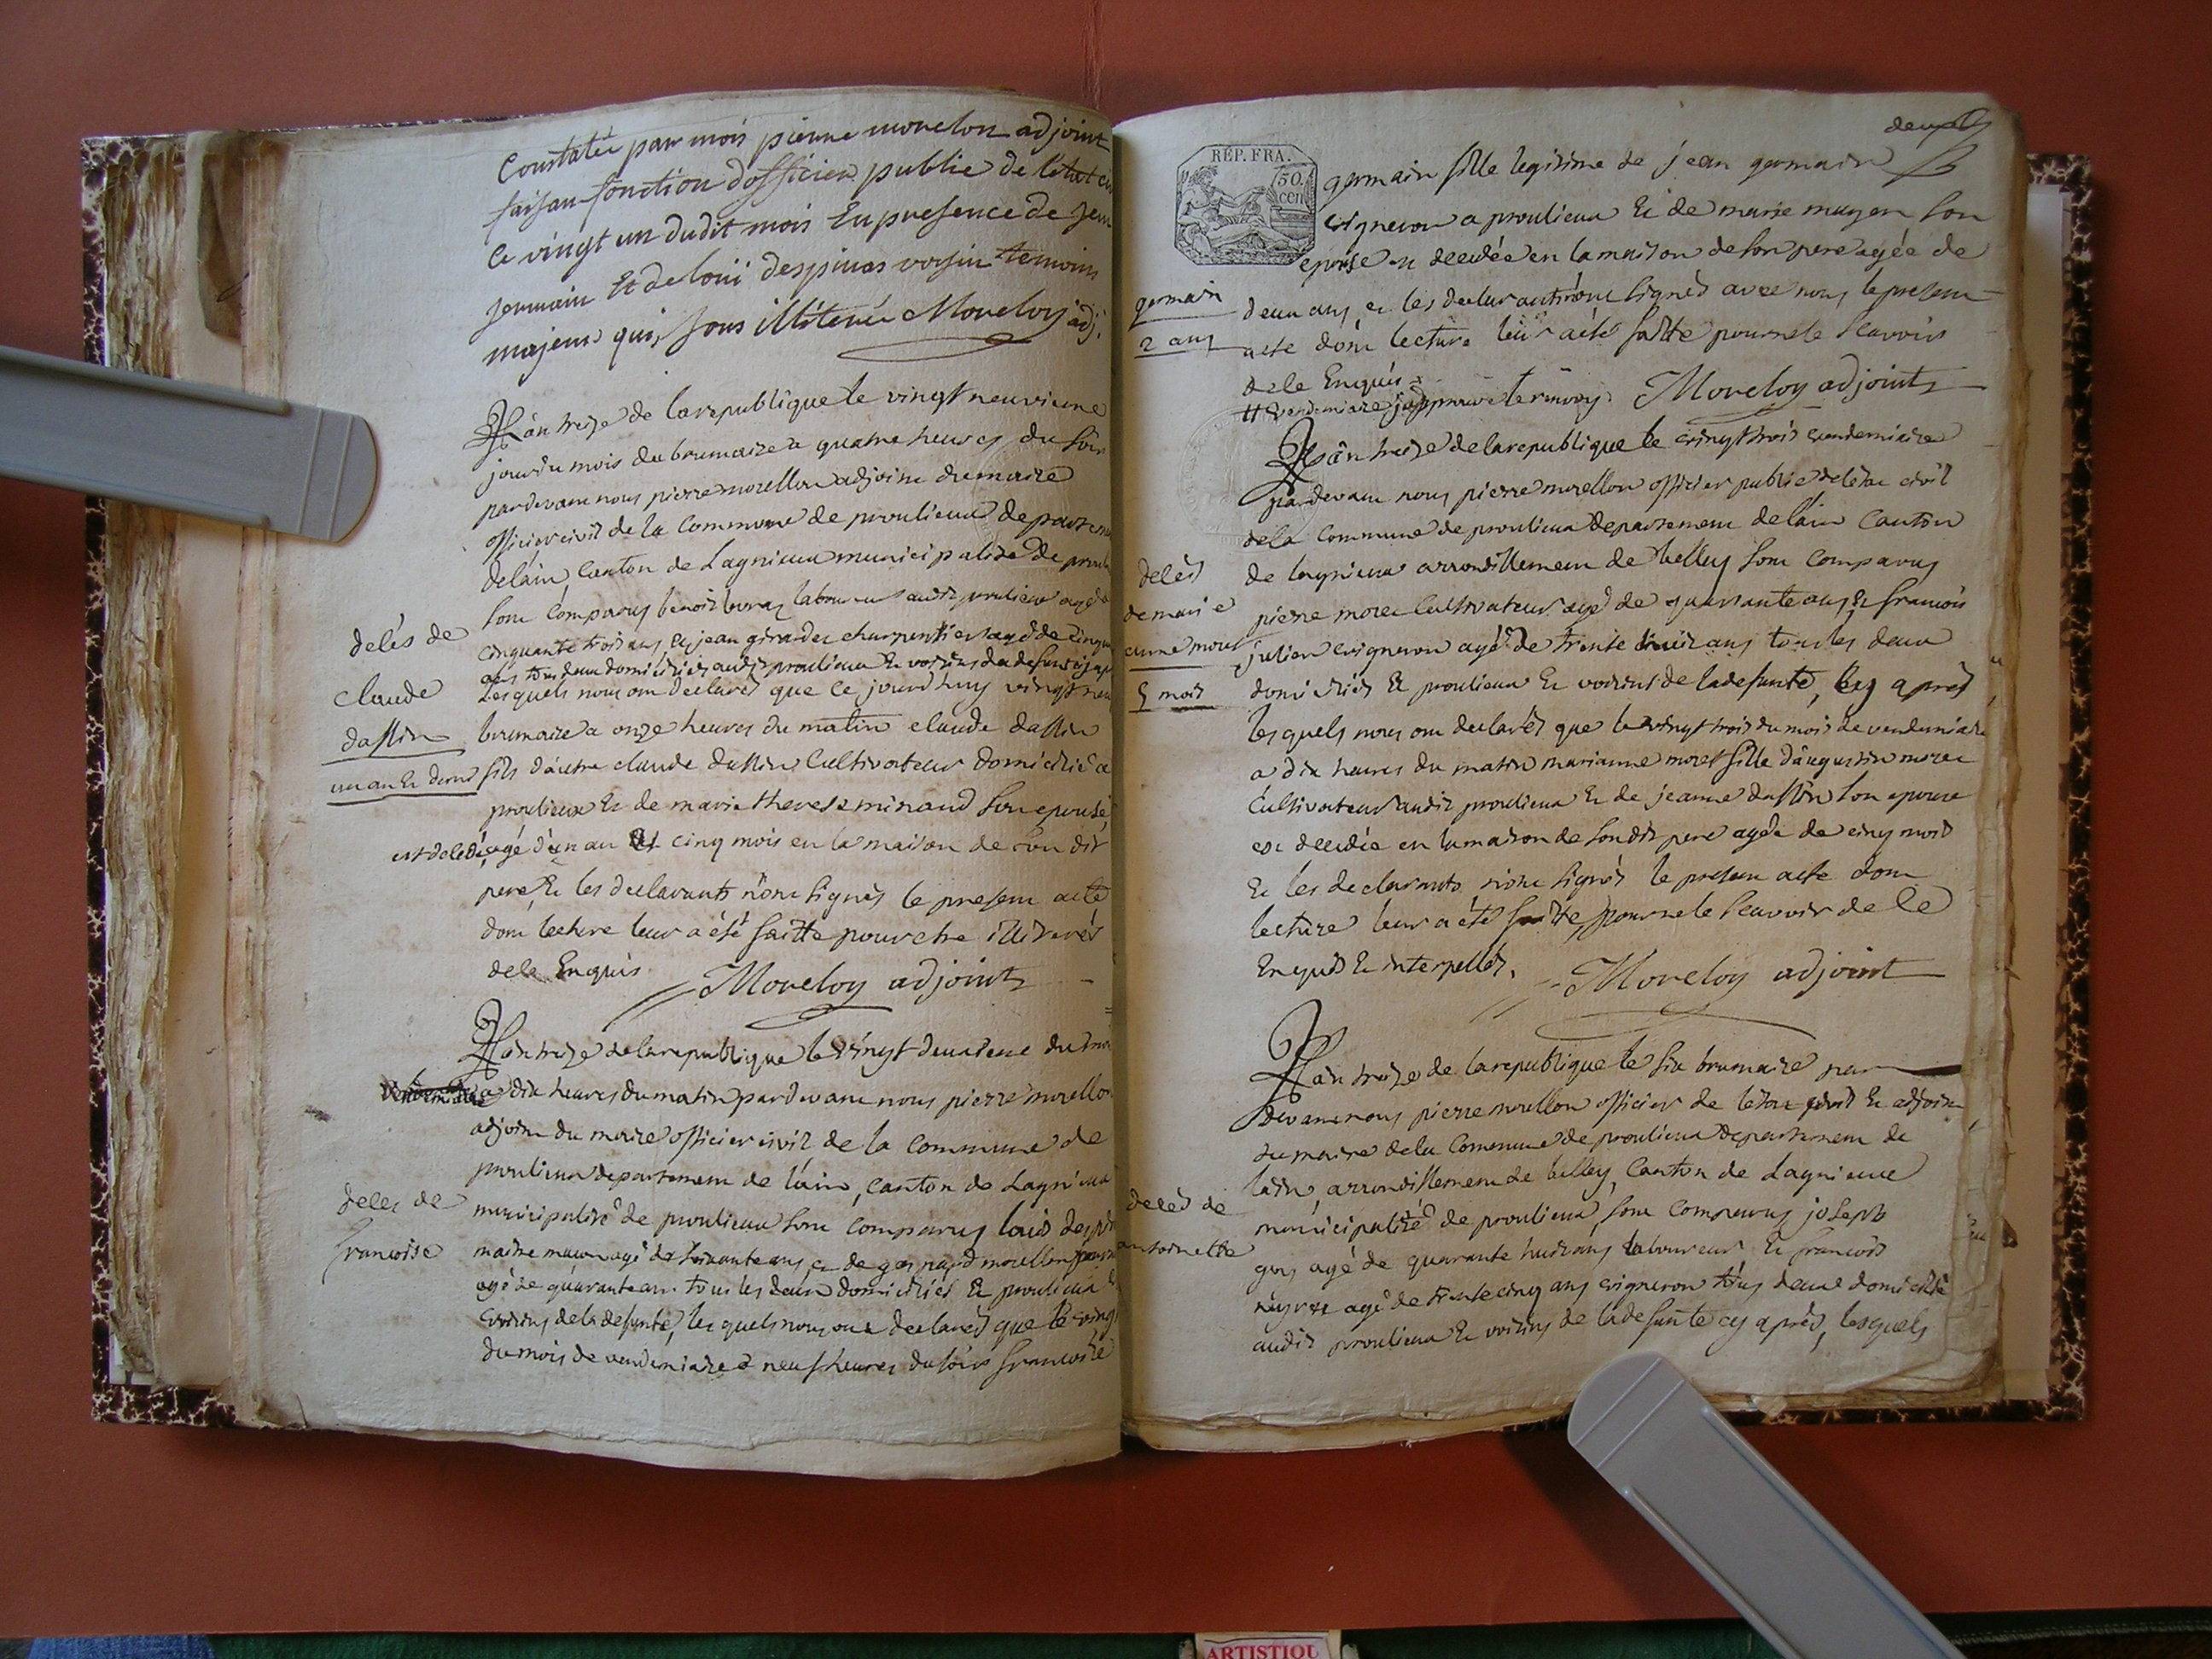 Constatée par mois pierre morelon adjoint
faisan fonction dofficier public de l'état
le vingt un dudit mois En presence de
jermain Et de loui despinas voisin temoins
majeur qui, sous illiterés Moreloy adj.
L'an treize de la republique le vingt neuvieme
jour du mois de brumaire a quatre heures du soir
pardevant nous pierre morellon adjoint du maire
officier civil de la Commune de proulieux
delain Canton de Lagnieux municipalité de
sont Comparus benoit laboureur audit proulieux agé
cinquante trois ans Et jean girardet charpentier agé de
tous deux domiciliés audit proulieux Et voisins du defunt
Lesquels nous ont declarés que Ce jourdhuy
delés de
claude
dassin
un an Et demi
brumaire a onze heures du matin claude dassin
fils d'autre claude dassin Cultivateur domicilié a
proulieux Et de marie therese minaud son epouse,
est deledé, agé d'un an Et cinq mois en la maison de son dit
pere, Et les declarants n'ont signés le present acte
dont lecture leur a été faitte pour etre illiterés
dele Enquis. Moreloy adjoint
L'an treize de la republique le vingt deuxieme du
vendemiaire a dix heures du matin pardevant nous pierre
adjoint du maire officier civil de la Commune de
proulieux departement de l'ain, Canton de Lagnieux
delés de
francoise
municipalité de proulieux sont Comparus louis
maitre macon agé de soixante ans, et de gaspard morellon
agé de quarante ans tous les deux domiciliés Et proulieux
voisins de la defunte, lesquels nous ont declarés que le
du mois de vendemiaire a neuf heures du soir francoise
REP. FRA.
50.
cen
germain fille legitime de jean germain
vigneron a proulieux Et de marie mugen son
epouse est decedée en la maison de son pere agée de
germain
2 ans
deux ans et les declarants n'ont signés avec nous le present
acte dont lecture leur a été faitte pour ne le scavoir
dele Enquis = Moreloy adjoint
vendemiaire j'approuve le renvoy
L'an treize de la republique le vingt trois vendemiaire
pardevant nous pierre morellon officier public de letat civil
dela Commune de proulieux departement de lain Canton
de lagnieux arrondissement de belley sont Comparus
delés
de marie
anne moret
5 mois
pierre moret Cultivateur agé de quarante ans Et francois
julien vigneron agé de trente huit ans tous les deux
domiciliés Et proulieux Et voisins de la defunte, Cy après
lesquels nous ont declarés que le vingt trois du mois de vendemiaire
a dix heures du matin marianne moret fille d'augustin moret
Cultivateur audit proulieux Et de jeanne dassin son epouse
est decedée en la maison de son dit pere agée de cinq mois
Et les declarants n'ont signés le present acte dont
lecture leur a été faitte, pour ne le scavoir de Ce
Enquis Et interpellés. Moreloy adjoint
L'an treize de la republique le six brumaire par
devant nous pierre morellon officier de letat civil Et adjoint
du maire dela Commune de proulieux departement de
lain, arrondissement de belley, Canton de Lagnieux
delés de
antoinette
municipalité de proulieux, sont Comparus joseph
goy agé de quarante huit ans laboureur Et francois
agé de trente cinq ans vigneron tous deux domicilié
audit proulieux Et voisins de la defunte cy après, lesquels
ARTISTIQU